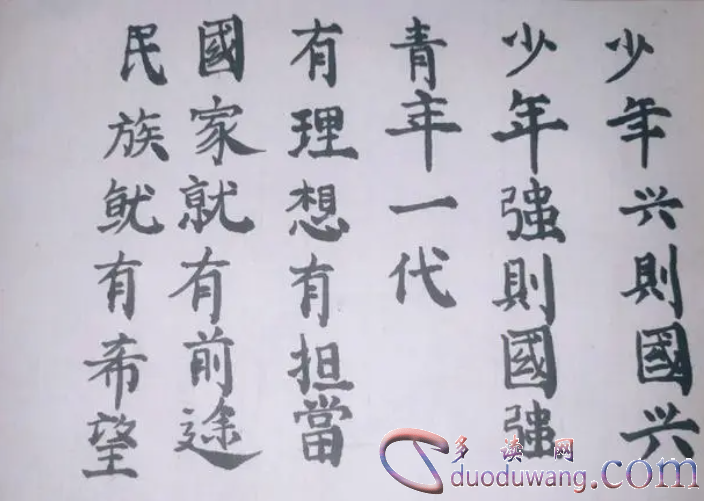 少年兴則國兴
少年强則國强
青年一代
有理想有担當
國家就有前途
民族就有希望
多读网
duoduwang.com